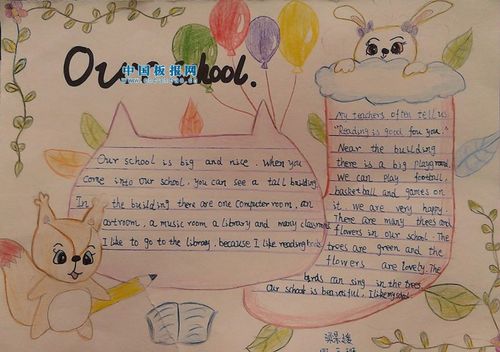 Our school.
中国板报网
Our school is big and nice. When you
come into our school, you can see a tall building
In the building there are one computer room, an
artroom, a music room a library and many classrooms
I like to go to the library, because I like reading books
My teachers often tell us
"Reading is good for you."
Near the building
there is a big playground
we can play football,
basketball and games on
it. we are very happy.
There are many threes and
flowers in our school. The
trees are green and the
flowers are lovely. The
birds can sing in the trees.
Our school is beautiful, I like my school.